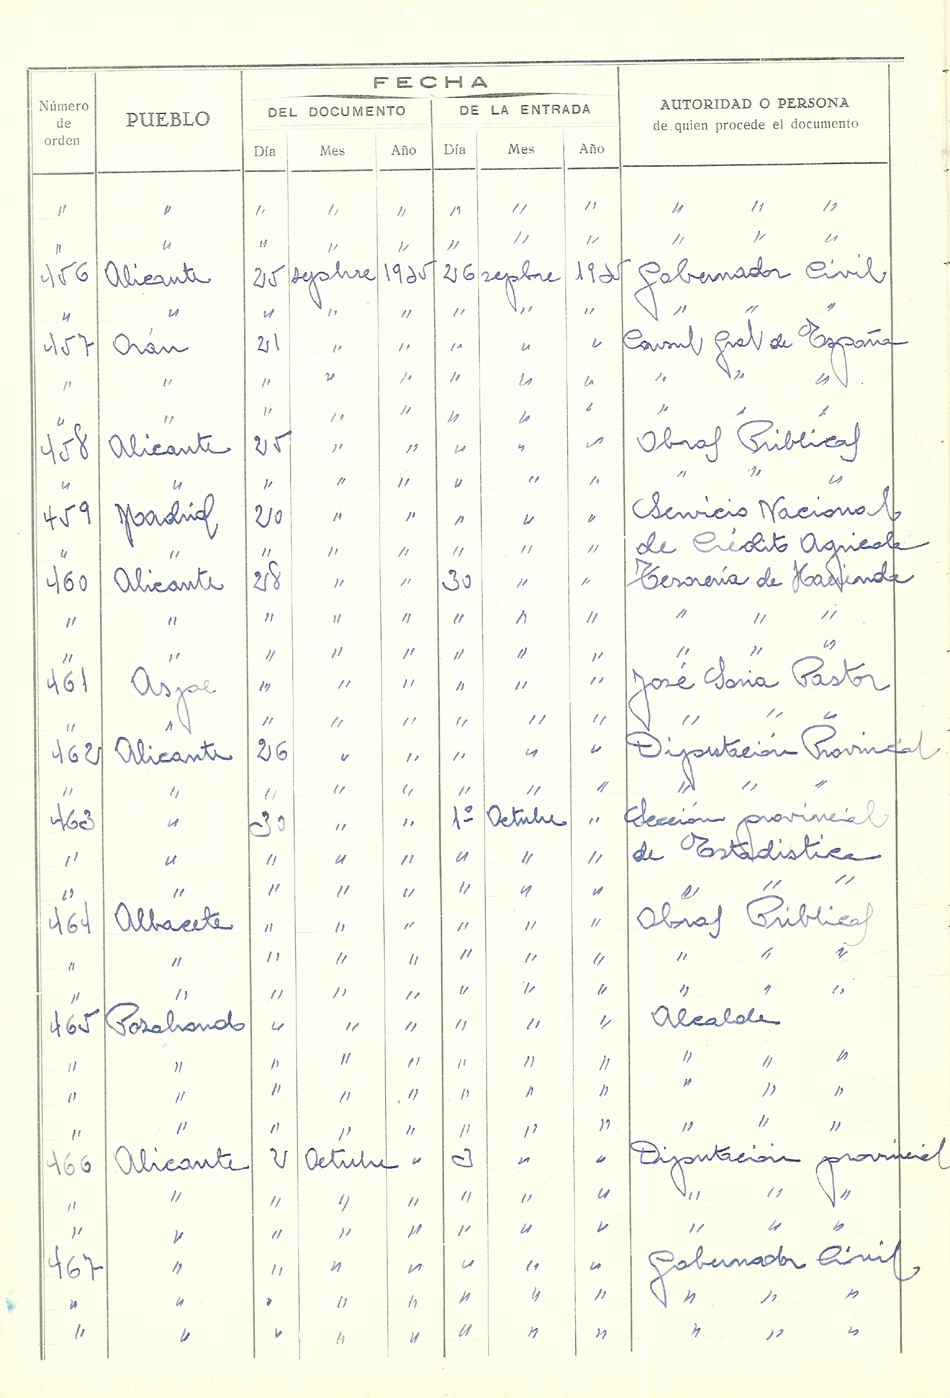 FECHA
Número de orden PUEBLO DEL DOCUMENTO DE LA ENTRADA AUTORIDAD O PERSONA de quien procede el documento
Día Mes Año Día Mes Año
" " " " " " " " " " "
" " " " " " " " " " "
456 Alicante 25 sepbre 1935 26 sepbre 1935 Gobernador Civil
" " " " " " " " " " "
457 Orán 21 " " " " " Consul Gral de España
" " " " " " " " " " "
" " " " " " " " " " "
458 Alicante 25 " " " " " Obras Públicas
" " " " " " " " " " "
459 Madrid 20 " " " " " Servicio Nacional
" " " " " " " " de Crédito Agricola
460 Alicante 28 " " 30 " " Tesorería de Hacienda
" " " " " " " " " " "
" " " " " " " " " " "
461 Aspe " " " " " " José Soria Pastor
" " " " " " " " " " "
462 Alicante 26 " " " " " Diputación Provincial
" " " " " " " " " " "
463 " 30 " " 1º Octubre " Sección provincial
" " " " " " " " de Estadistica
" " " " " " " " " " "
464 Albacete " " " " " " Obras Públicas
" " " " " " " " " " "
" " " " " " " " " " "
465 Pozohondo " " " " " " Alcalde
" " " " " " " " " " "
" " " " " " " " " " "
" " " " " " " " " " "
466 Alicante 2 Octubre " 3 " " Diputación provincial
" " " " " " " " " " "
" " " " " " " " " " "
467 " " " " " " " Gobernador Civil
" " " " " " " " " " "
" " " " " " " " " " "